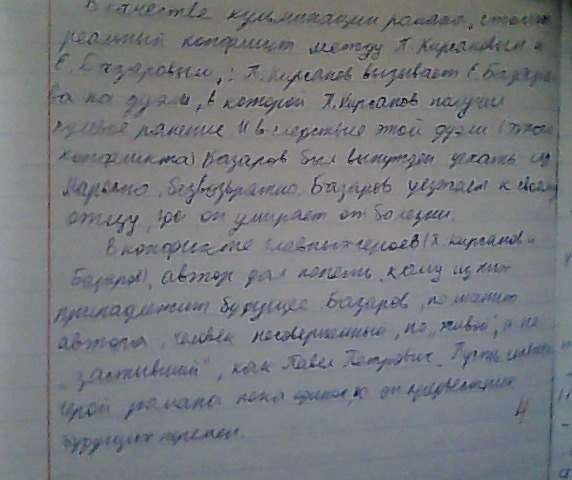 В качестве кульминации романа, стоит
реальный конфликт между П. Кирсановым и
Е. Базаровым, : П. Кирсанов вызывает Е. Базаро
ва на дуэль, в которой П. Кирсанов получил
пулевое ранение. И в следствие этой дуэли (
конфликта) Базаров был вынужден уехать из
Марьино, безвозвратно. Базаров уезжает к своему
отцу, где он умирает от болезни.
В конфликте главных героев (П. Кирсанов и
Базаров), автор дал понять, кому из них
принадлежит будущее. Базаров, по мнению
автора, человек несовершенный, но "живой", а не
"застывший", как Павел Петрович. Пусть
герой романа пока одинок, но он предвестник
будущих перемен.
4